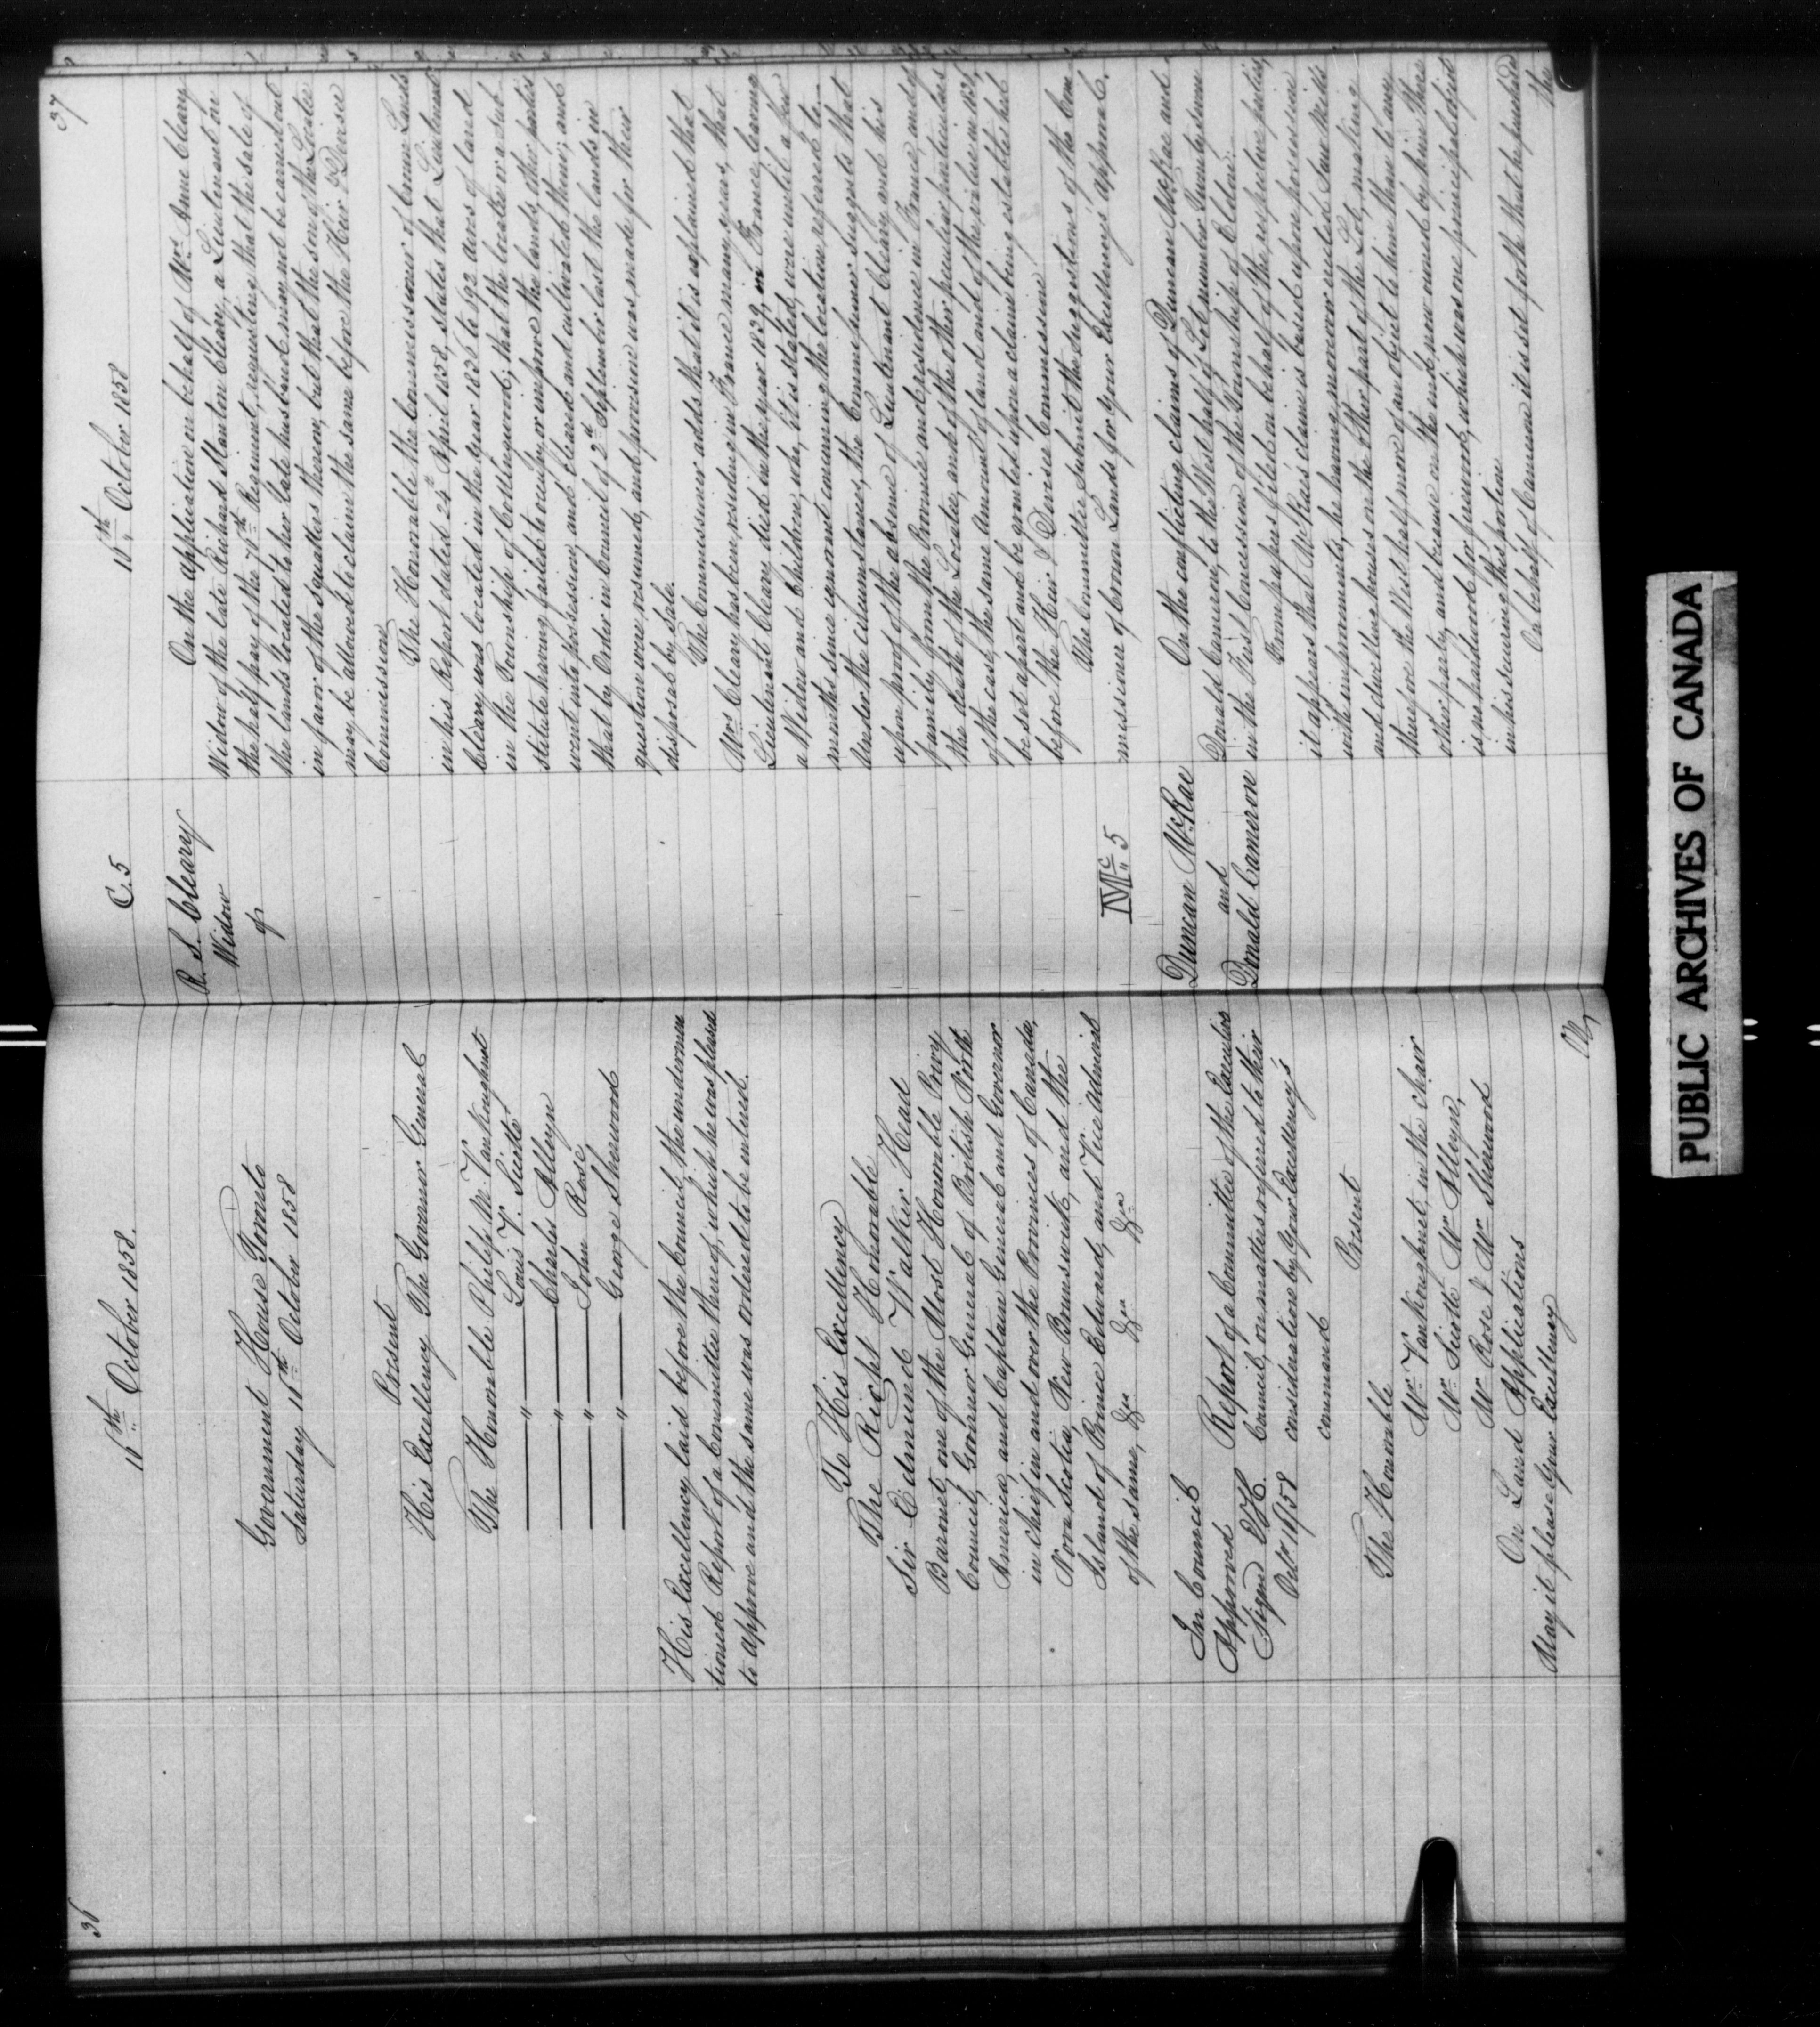 36
16th October 1858.
Government House Toronto
Saturday 16th October 1858
Present
His Excellency The Governor General
The Honorable Philip M. Vankoughnet
" Louis V. Sicotte
" Charles Alleyn
" John Rose
" George Sherwood
His Excellency laid before the Council the undermen
tioned Report of a Committee thereof, which he was pleased
to approve and the same was ordered to be entered.
To His Excellency
The Right Honorable
Sir Edmund Walker Head
Baronet, one of the Most Honorable Privy
Council, Governor General of British North
America, and Captain General and Governor
in Chief in and over the Provinces of Canada,
Nova Scotia, New Brunswick, and the
Island of Prince Edward, and Vice Admiral
of the same, &ca &ca &ca
In Council
Approved
Signed E. H.
Octr 16/58
Report of a Committee of the Executive
Council, on matters referred to their
consideration by Your Excellency's
command
Present
The Honorable
Mr. Vankoughnet, in the chair
Mr. Sicotte Mr. Alleyn,
Mr. Rose & Mr. Sherwood
On Land Applications
May it please Your Excellency
On
37
16th October 1858
C. 5
R. S. Cleary
Widow
of
On the application on behalf of Mrs. Anne Cleary
Widow of the late Richard Stanton Cleary, a Lieutenant on
the half pay of the 75th Regiment, requesting that the sale of
the lands located to her late husband may not be carried out
in favor of the squatters thereon, but that the son of the Locatee
may be allowed to claim the same before the Heir & Devisee
Commission
The Honorable the Commissioner of Crown Lands
in his Report dated 24th April 1858, states that Lieutenant
Cleary was located in the year 1836 to 692 acres of land
in the Township of Collingwood; that the locatee or a sub
stitute having failed to occupy or improve the lands, other parties
went into possession, and cleared and cultivated them; and
that by Order in Council of 2d September last the lands in
question were resumed, and provision was made for their
disposal by Sale.
The Commissioner adds that it is explained that
Mrs. Cleary has been residing in France many years, that
Lieutenant Cleary died in the year 1839, in France, leaving
a Widow and Children, who, it is stated, were until a few
months since ignorant concerning the location referred to.—
Under the circumstances, the Commissioner suggests that
upon proof of the absence of Lieutenant Cleary and his
family from the Province and residence in France, and of
the death of the Locatee, and of the other peculiar particulars
of the case, the same amount of land and of the value in 1836,
be set apart and be granted upon a claim being established
before the Heir & Devisee Commission
The Committee submit the suggestions of the Com
missioner of Crown Lands for Your Excellency's approval.
Mc. 5
Duncan McRae
and
Donald Cameron
On the conflicting claims of Duncan McRae and
Donald Cameron, to the West half of Lot number Twenty seven
in the First Concession of the Township of Eldon.
From papers filed on behalf of the respective parties,
it appears that McRae's claim is based upon possession
with improvements, he having moreover erected Saw Mills
and dwelling houses on the other part of the Lot, making
therefore the West half more of an object to him than to any
other party, and because on the end, now owned by him there
is no hardwood for firewood, which was one principal object
in his securing this portion
On behalf of Cameron it is set forth that he purchased
the
PUBLIC ARCHIVES OF CANADA